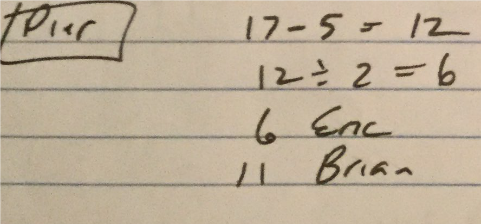 Pier
17 - 5 = 12
12 ÷ 2 = 6
6 Eric
11 Brian